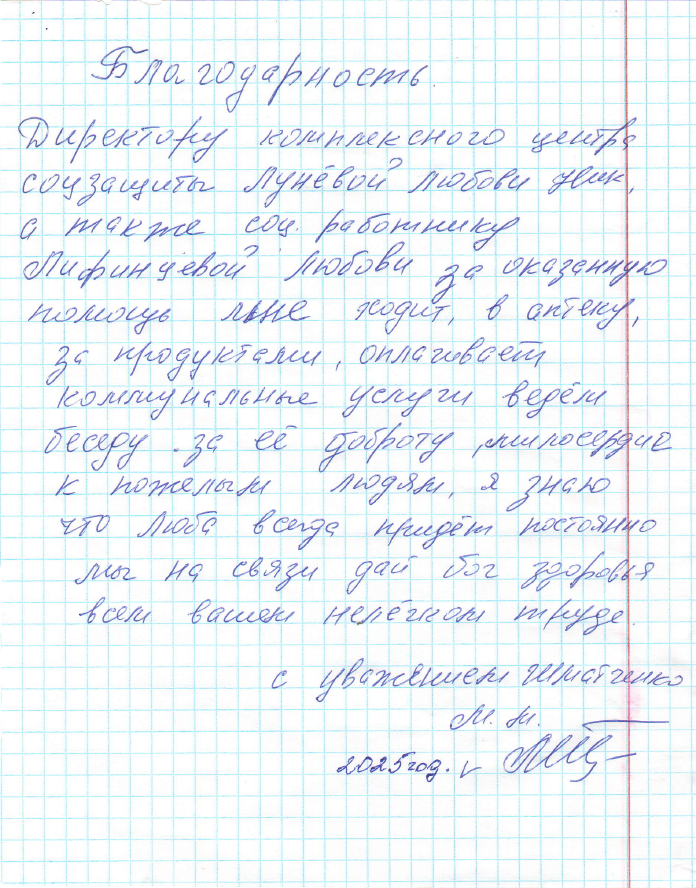 Благодарность.
Директору комплексного центра
соцзащиты Лунёвой Любови
а также соц. работнику
Любови за оказанную
помощь мне ходит, в аптеку,
за продуктами, оплачивает
коммунальные услуги ведём
беседу. за её доброту, милосердие
к пожелым людям, я знаю
что Люба всегда придёт постоянно
мы на связи дай бог здоровья
всем вашем нелёгком труде.
с уважением Шматченко
М. М.
2025 год.